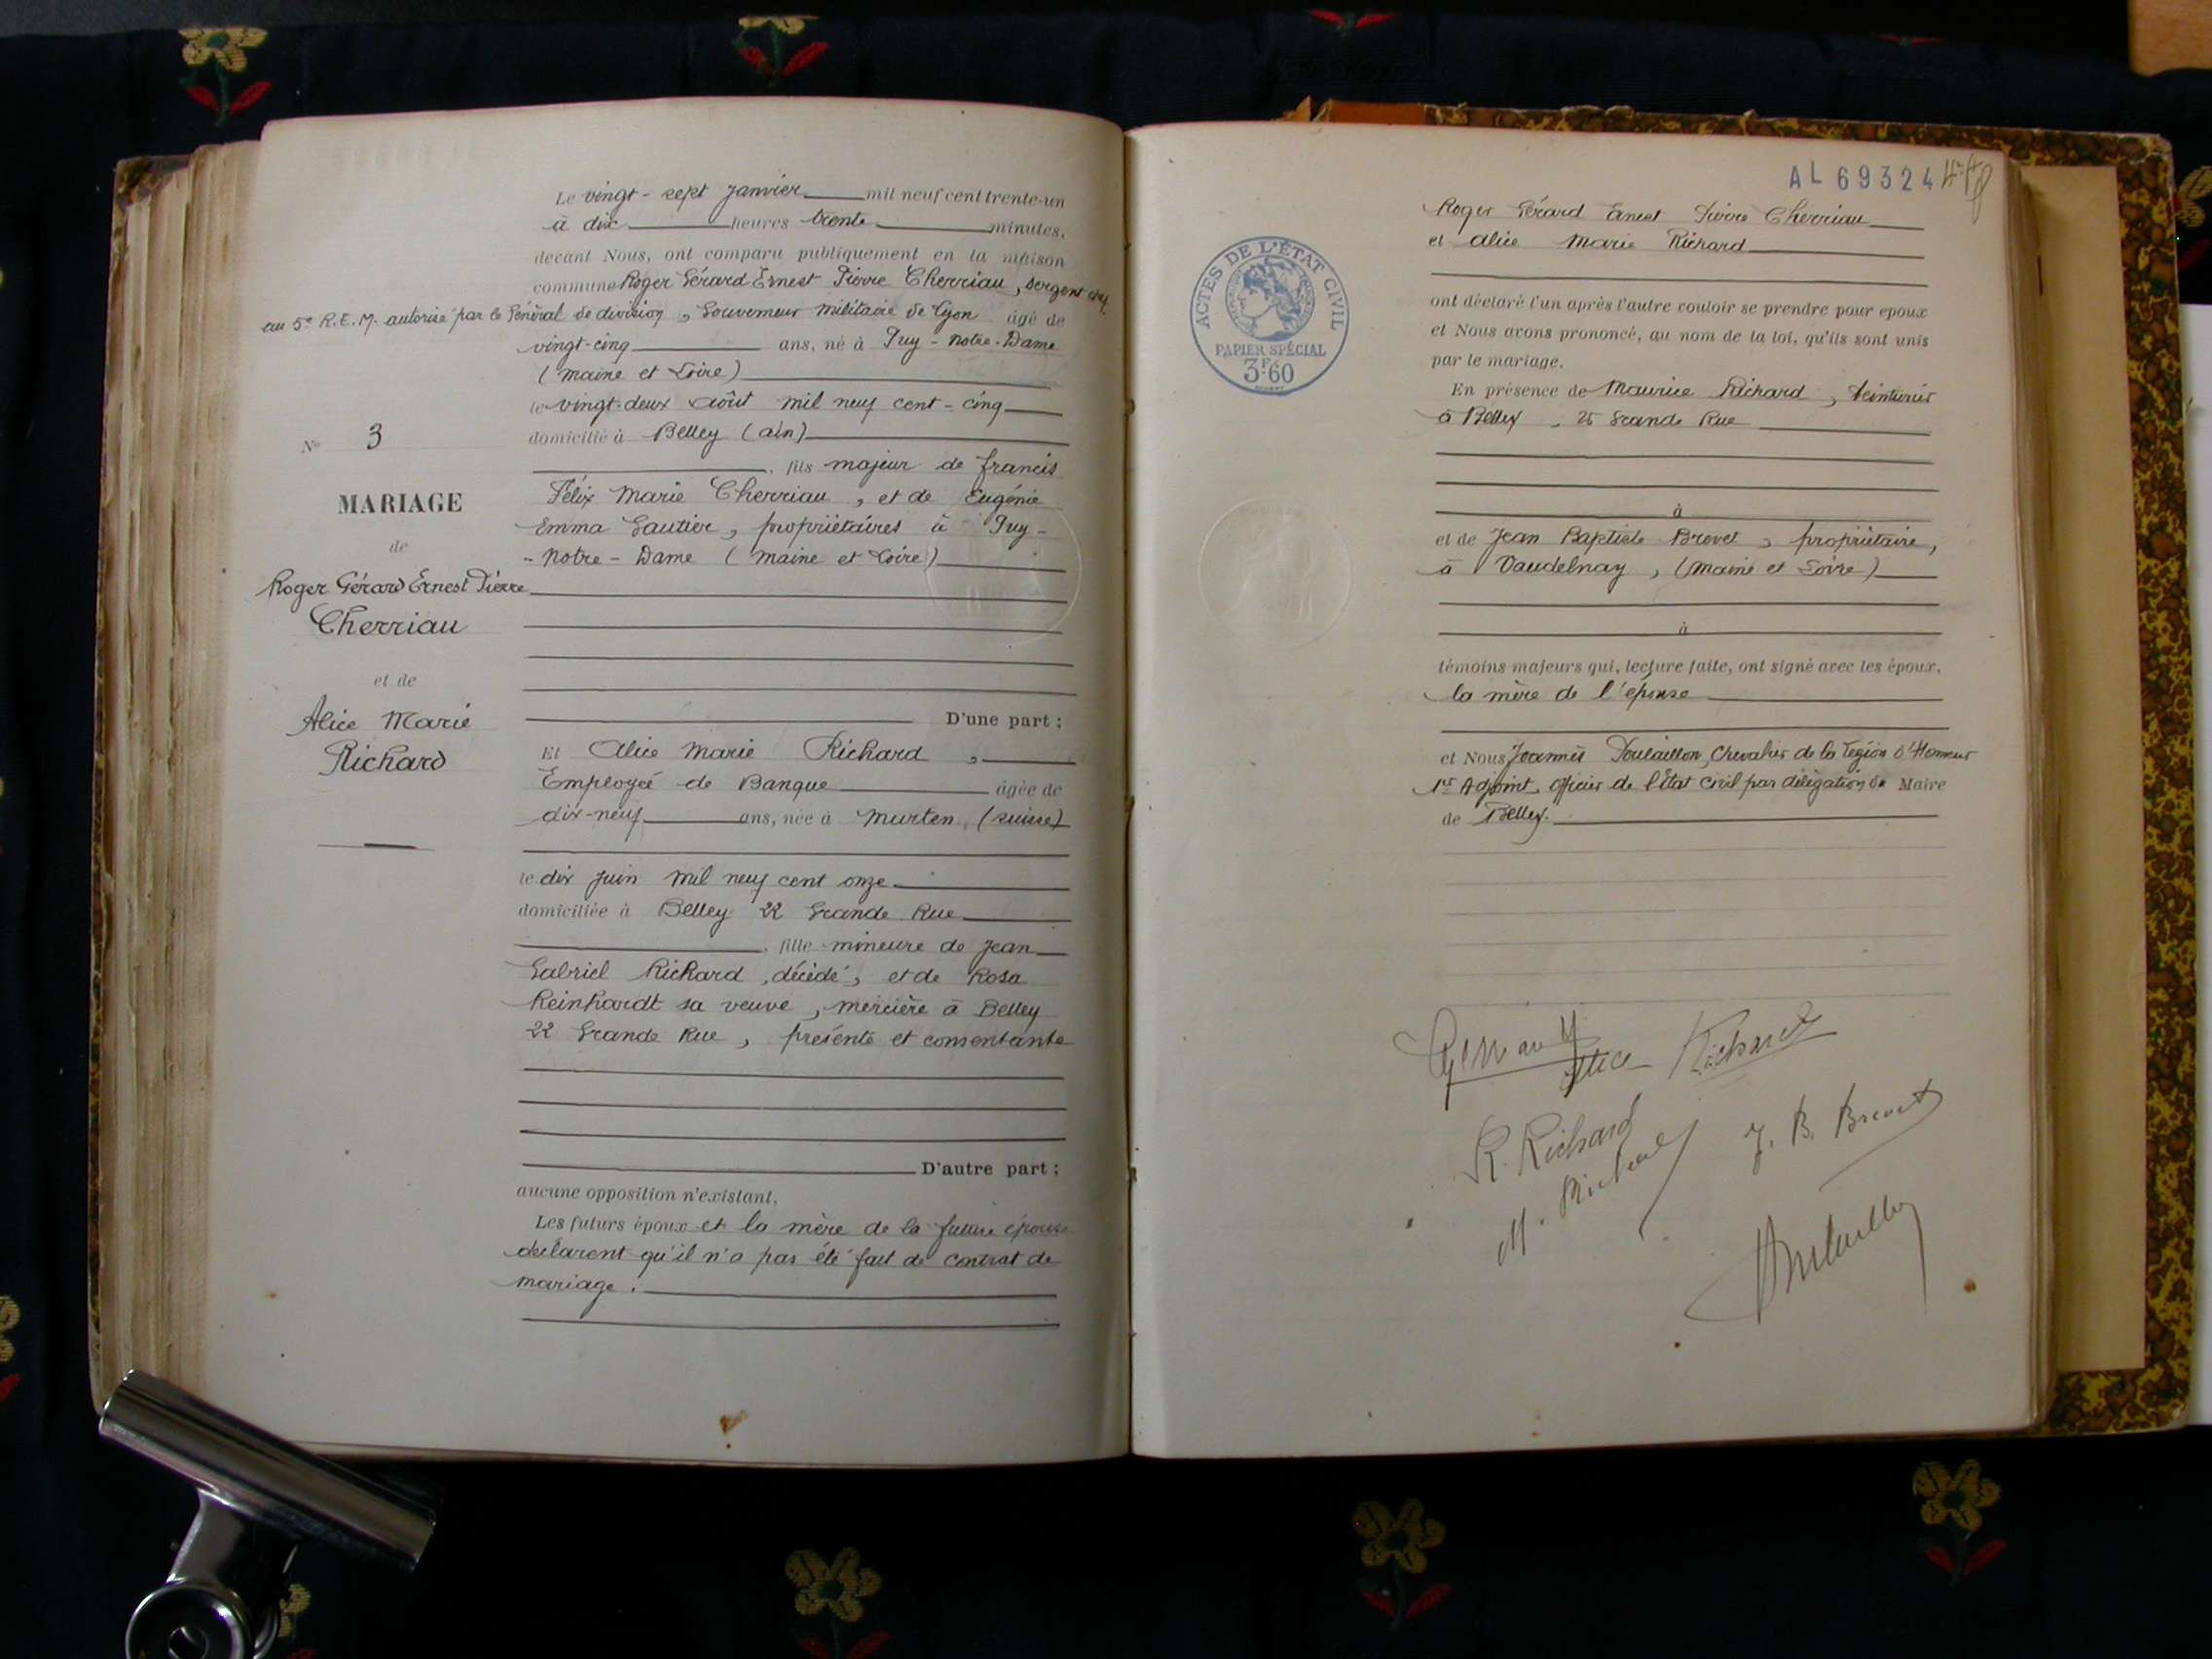 Le vingt-sept Janvier mil neuf cent trente-un
à dix heures trente minutes,
devant Nous, ont comparu publiquement en la maison
commune Roger Gérard Ernest Pierre Cherriau, sergent chef
au 5e R.E.M. autorisé par le Général de division, Gouverneur militaire de Lyon âgé de
vingt-cinq ans, né à Puy-Notre-Dame
(Maine et Loire)
le vingt-deux Août mil neuf cent-cinq
domicilié à Belley (Ain)
, fils majeur de Francis
Félix Marie Cherriau, et de Eugénie
Emma Gautier, propriétaires à Puy-
-Notre-Dame (Maine et Loire)
D'une part ;
Et Alice Marie Richard,
Employée de Banque âgée de
dix-neuf ans, née à Murten, (Suisse)
le dix Juin mil neuf cent onze
domiciliée à Belley 22 Grande Rue
, fille mineure de Jean
Gabriel Richard, décédé, et de Rosa
Reinhardt sa veuve, mercière à Belley
22 Grande Rue, présente et consentante
D'autre part ;
aucune opposition n'existant,
Les futurs époux et la mère de la future épouse
déclarent qu'il n'a pas été fait de contrat de
mariage.
No 3
MARIAGE
de
Roger Gérard Ernest Pierre
Cherriau
et de
Alice Marie
Richard
AL 69324
ACTES DE L'ÉTAT CIVIL
PAPIER SPÉCIAL
3F.60
Roger Gérard Ernest Pierre Cherriau
et Alice Marie Richard
ont déclaré l'un après l'autre vouloir se prendre pour époux
et Nous avons prononcé, au nom de la loi, qu'ils sont unis
par le mariage.
En présence de Maurice Richard, teinturier
à Belley, 25 Grande Rue
à
et de Jean Baptiste Brevet, propriétaire,
à Vaudelnay, (Maine et Loire)
à
témoins majeurs qui, lecture faite, ont signé avec les époux,
la mère de l'épouse
et Nous Joannès Chevalier de la Légion d'Honneur
1er Adjoint, officier de l'État Civil par délégation du Maire
de Belley.
Alice Richard
R. Richard
M. Richard
J. B. Brevet